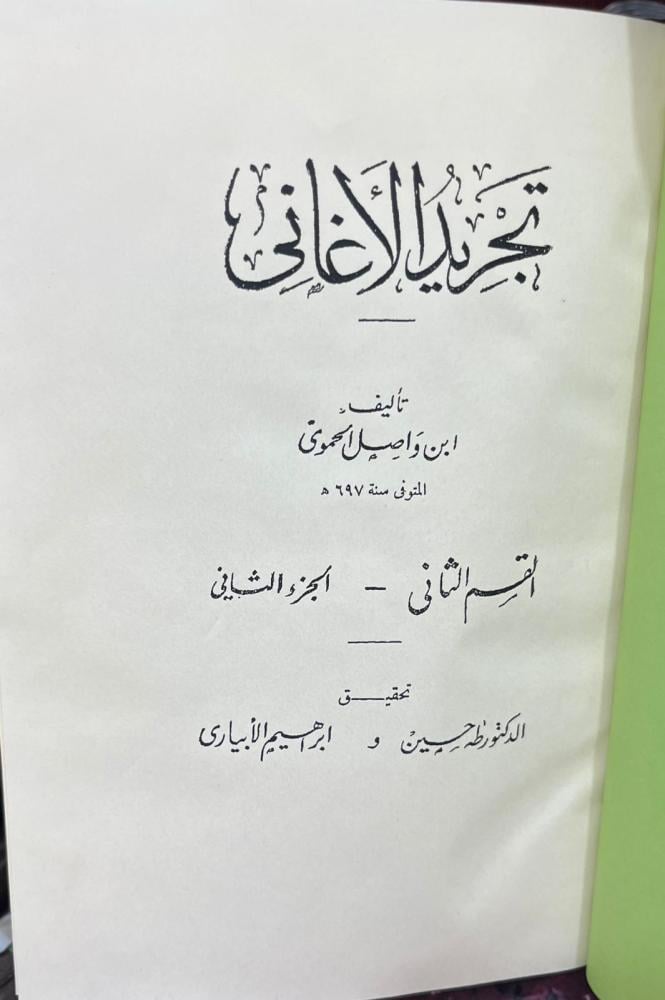 تجريد الأغاني
تأليف
ابن واصل الحموى
المتوفى سنة ٦٩٧ هـ
القسم الثانى – الجزء الثاني
تحقيق
الدكتور طه حسين و ابراهيم الأبيارى